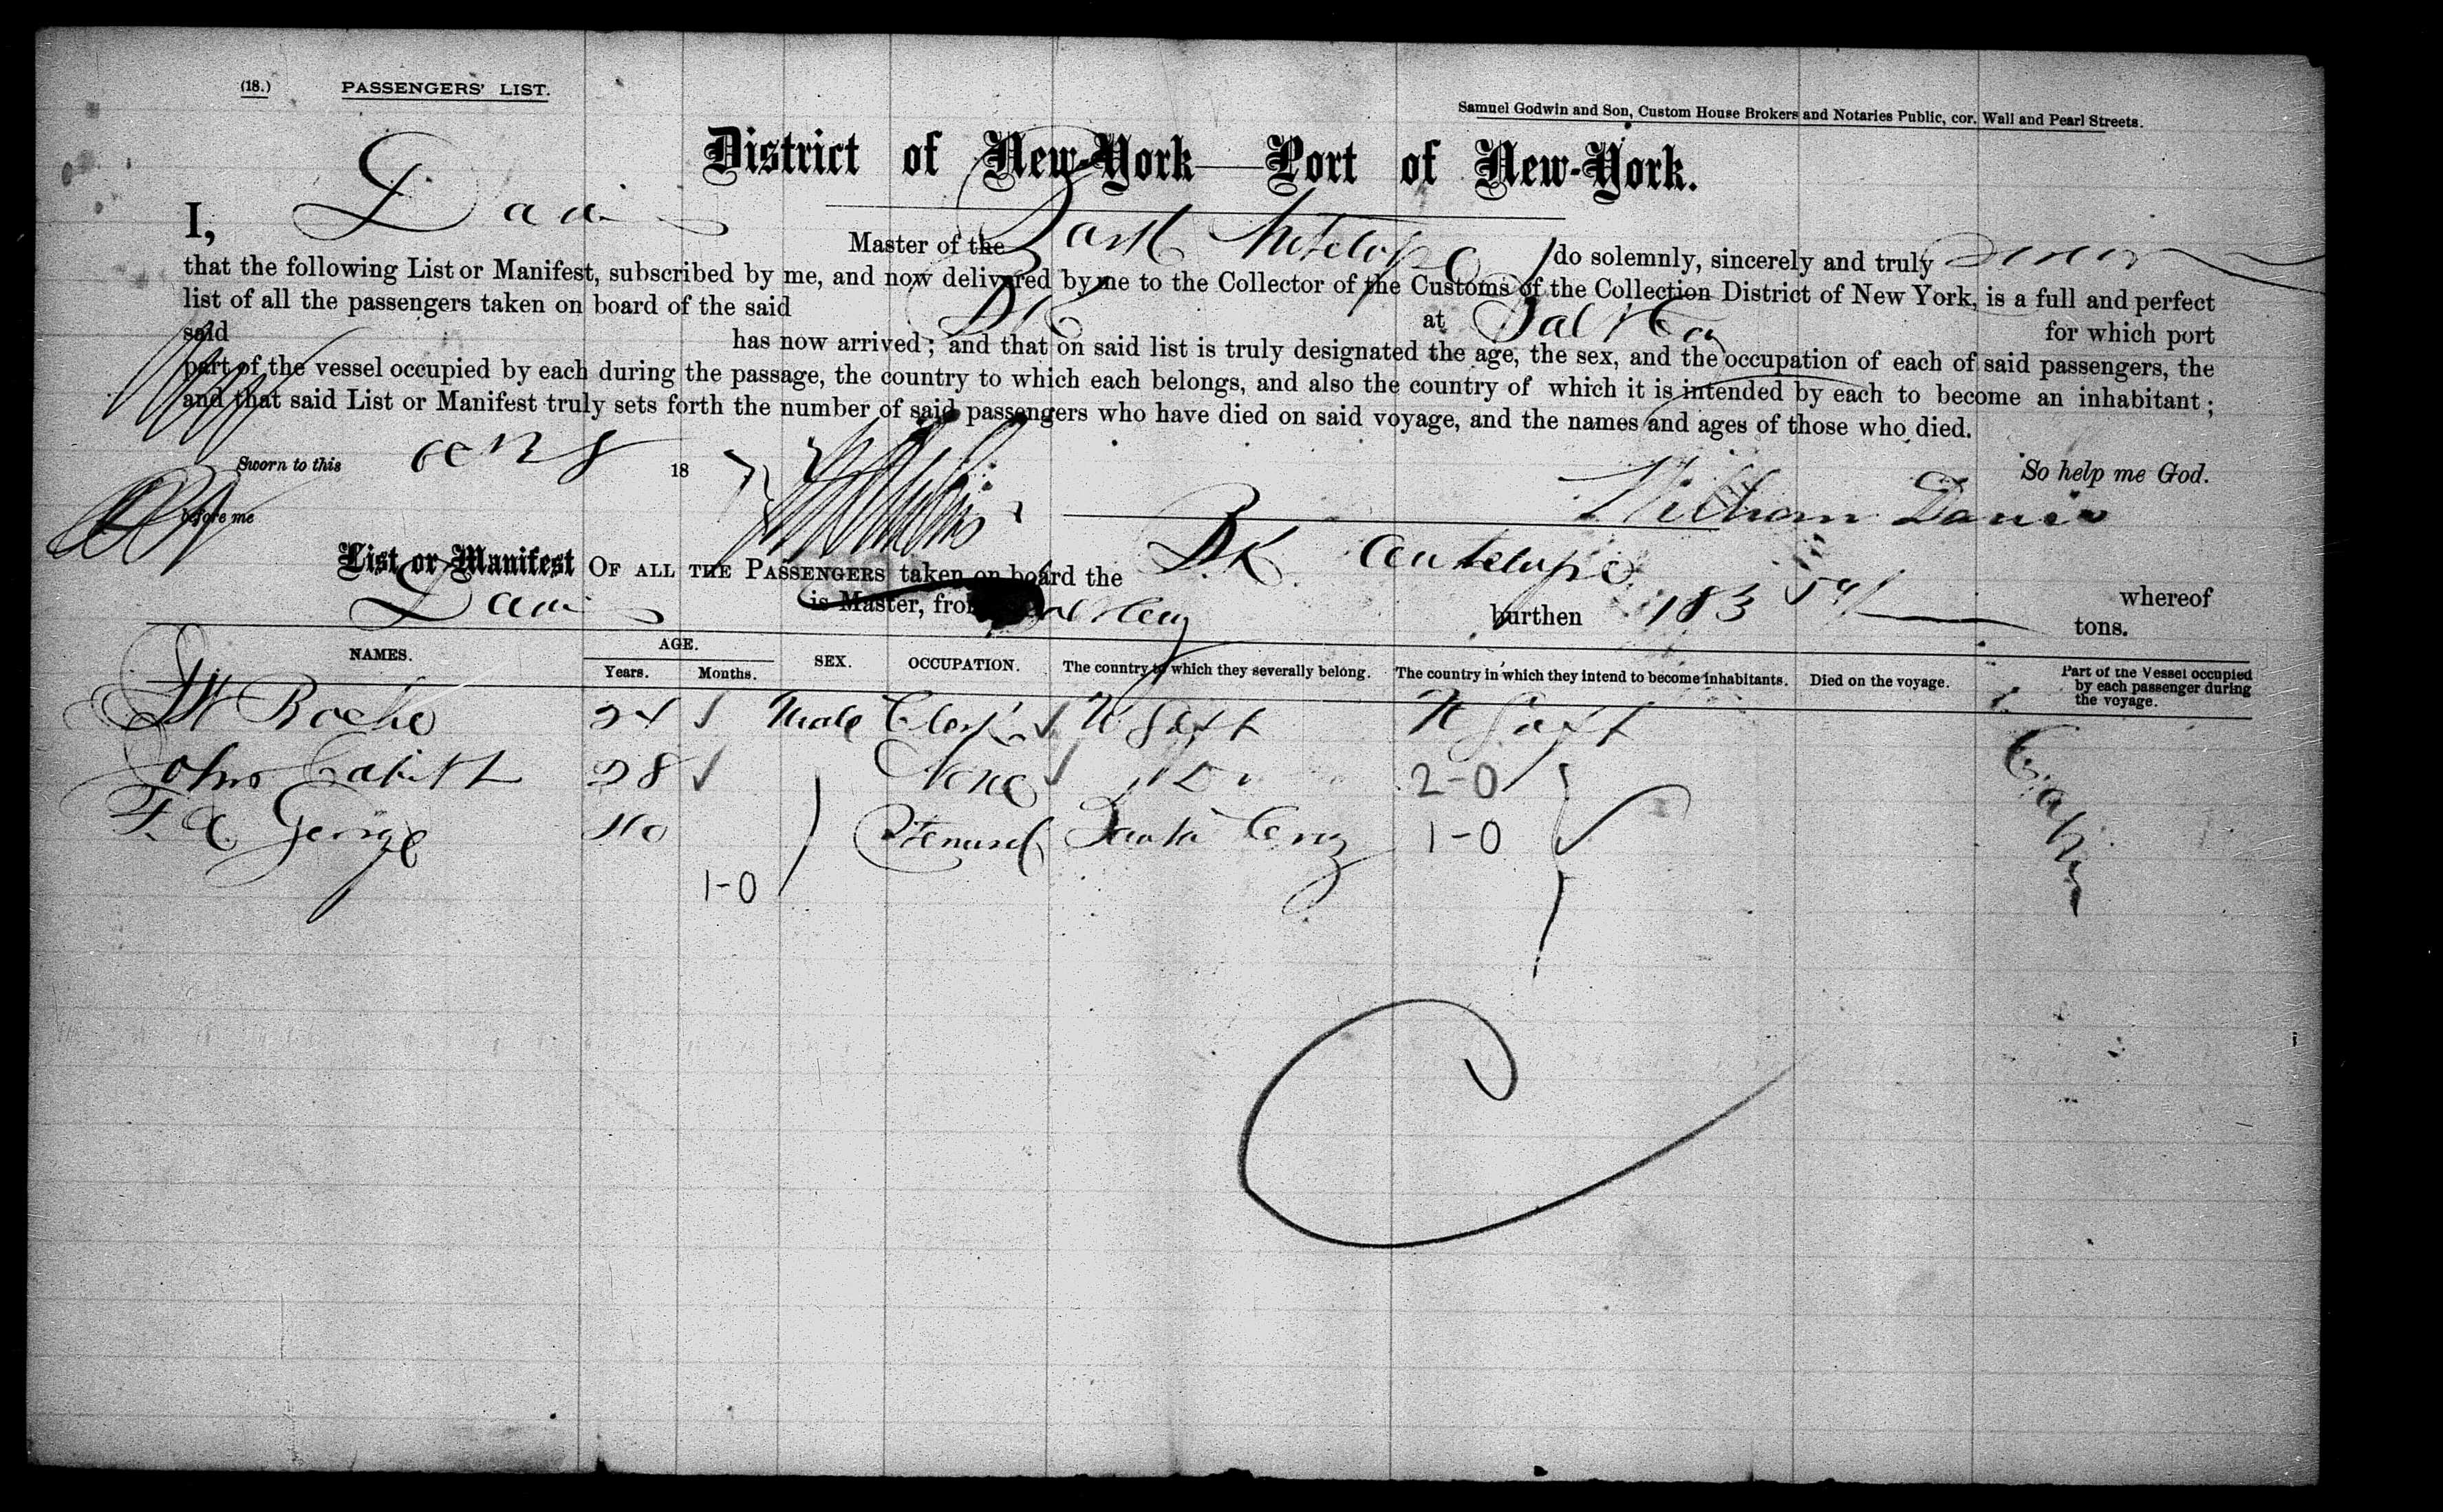 (18.) PASSENGERS' LIST.
Samuel Godwin and Son, Custom House Brokers and Notaries Public, cor. Wall and Pearl Streets.
District of New-York—Port of New-York.
I, Davis Master of the Bark Antelope do solemnly, sincerely and truly swear
that the following List or Manifest, subscribed by me, and now delivered by me to the Collector of the Customs of the Collection District of New York, is a full and perfect
list of all the passengers taken on board of the said Bk at for which port
said has now arrived; and that on said list is truly designated the age, the sex, and the occupation of each of said passengers, the
part of the vessel occupied by each during the passage, the country to which each belongs, and also the country of which it is intended by each to become an inhabitant;
and that said List or Manifest truly sets forth the number of said passengers who have died on said voyage, and the names and ages of those who died.
Sworn to this 18 So help me God.
before me William Davis
List or Manifest OF ALL THE PASSENGERS taken on board the Bk Antelope whereof
Davis is Master, from burthen 183 tons.
NAMES. AGE. Years. Months. SEX. OCCUPATION. The country to which they severally belong. The country in which they intend to become inhabitants. Died on the voyage. Part of the Vessel occupied by each passenger during the voyage.
Roche 24 Male Clerk
John 28 None Do 2-0
F. A George 40 Santa Cruz 1-0
1-0
Cabin